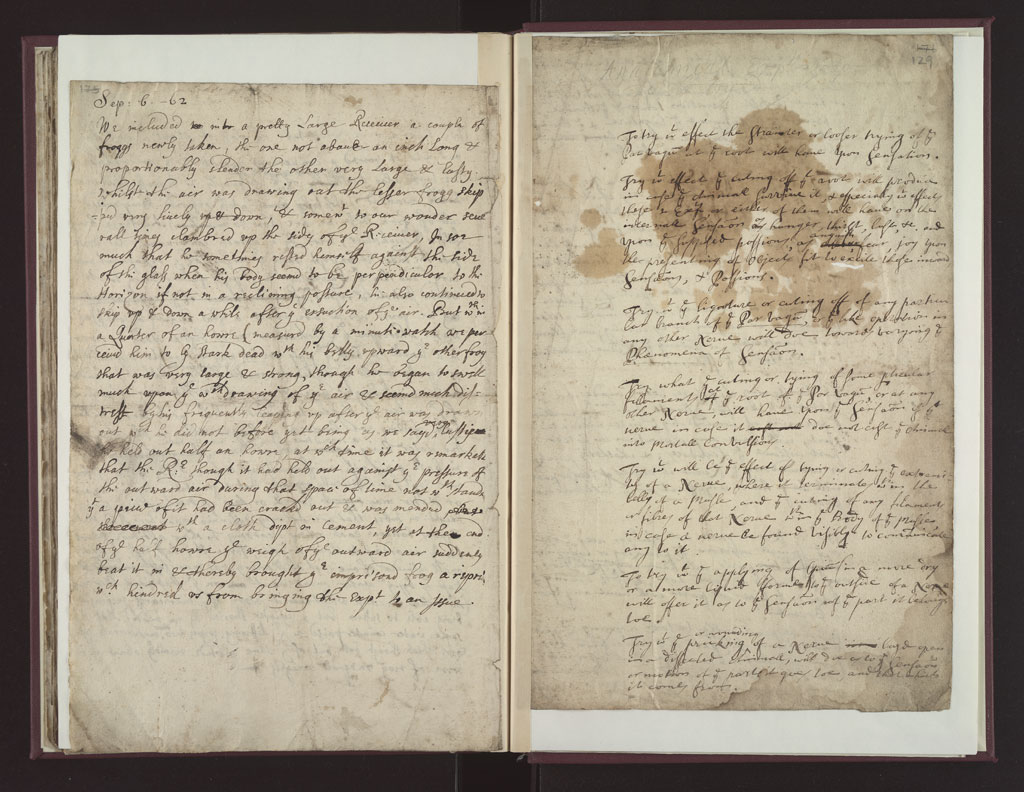 Sep: 6. -62
We included into a pretty Large Receiver a couple of
froggs newly taken, the one not about an inch long &
proportionably slender the other very Large & lusty
whilst the air was drawing out the lessar frogg skip
ped very lively up & down, & somewt to our wonder seve
rall times clambred up the sides of ye Receiver, In soe
much that he sometimes rested himself against the side
of the glass when his body seemd to be perpendicular to the
Horizon if not in a reclining posture, he also continued to
skip up & down a while after ye exsuction of ye air. But wthin
a Quarter of an howre (measurd by a minute-watch we per
ceivd him to ly stark dead wth his belly upward ye other frog
that was very large & strong, though he began to swell
much upon ye wthdrawing of ye air & seemd much dis-
tresst by his frequently leaping up after ye air was drawn
out wch he did not before yet being as we said very lusty
he held out half an howre, at wch time it was remarkable
that the Rr though it had held out against ye pressure of
the outward air during that space of time notwthstand
ye a peice of it had been crackd out & was mended
wth a cloth dypt in Cement, yet at the end
of ye half howre ye weigh of ye outward air suddenly
beat it in & thereby brought ye imprisond frog a reprive
wch hindred us from bringing the Expt to an Issue.
129
To try wt effect the straiter or looser tying of ye
Par vagum at ye root will have upon sensation.
Try wt effect ye cutting off ye root will produce
in case ye animal survive it, & especially wt effects
these or either of them will have on the
internal sensations as hunger, thirst, lust &c, and
upon ye passions, as anger fear, joy upon
the presenting of objects fit to excite those inward
sensations, & Passions.
Try wt ye Ligature or cutting off of any particu
lar branch of ye Par vagum or like operation in
any other Nerve will doe towards varying ye
Phenomena of sensation.
Try what ye cutting or tying of some pticular
filaments of ye root of ye Par vagum, or at any
other Nerve, will have upon ye sensation of yt
nerve in case it doe not cast ye Animal
into Mortall Convulsions.
Try wt will be ye effect of tying or cutting ye extremi
ty of a Nerve, where it terminates in the
belly of a Musle, and ye cutting of any filament
or fibres of that Nerve wthin ye Body of ye Musle
in case a nerve be found visibly to communicate
any to it
To try wt ye applying of Opium more dry
or a more liquid forme to ye outside of a Nerve
will offer it as to ye sensation of ye part it belongs
toe.
Try wt ye pricking or wounding of a Nerve layd open
in a dissected Animall, will doe as to ye sensation
or motion of ye parts it goes toe, and
it comes from.